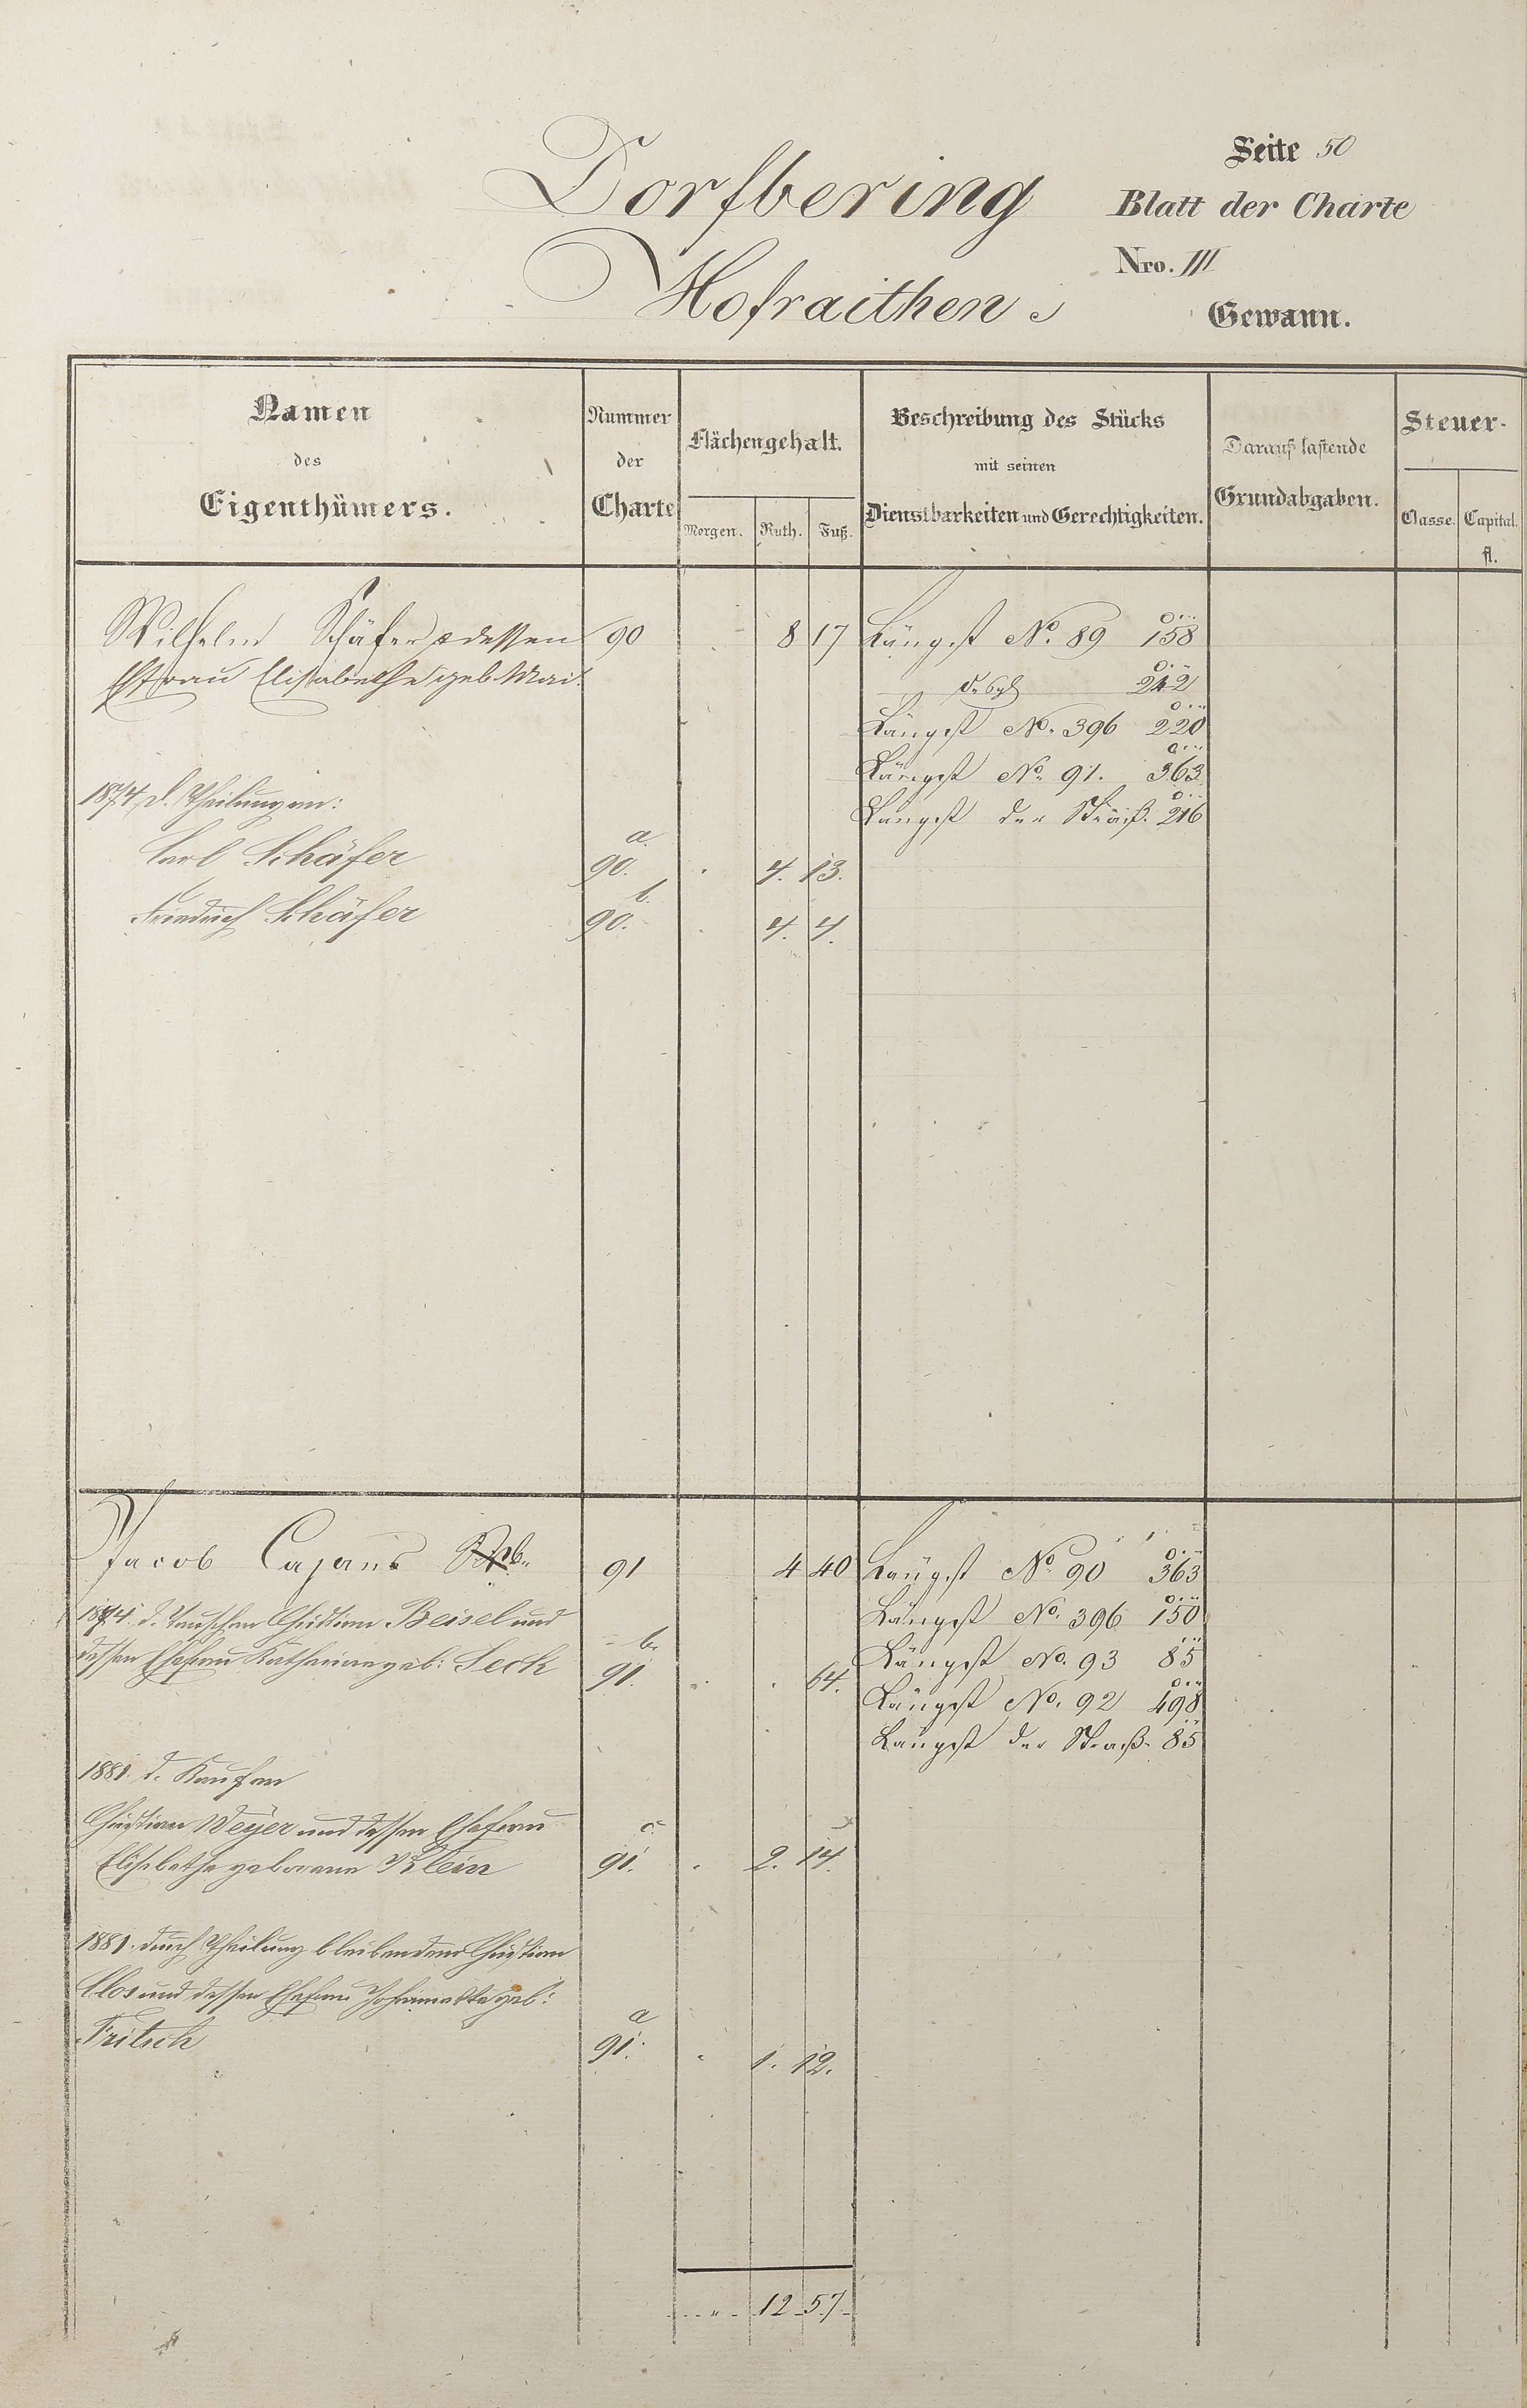 Seite 50
Dorfbering
Blatt der Charte
Hofraithen
Nro. III
Gewann.
Namen
des
Eigenthümers.
Nummer
der
Charte
Flächengehalt.
Morgen. Ruth. Fuß.
Beschreibung des Stücks
mit seinen
Dienstbarkeiten und Gerechtigkeiten.
Darauf lastende
Grundabgaben.
Steuer-
Classe. Capital.
fl.
Wilhelm Schäfer & dessen 90 8 17 Längest No. 89 158
Ehfrau Elisabetha geb. Mai. 242
Längest No. 396 220
Längest No. 91. 363
1874 d. Theilung an:
Längest der Straß. 216
Carl Schäfer 90.a. 4. 13.
Friedrich Schäfer 90.b. 4. 4.
Jacob Cajans 91 4 40 Längest No. 90 363
Längest No. 396 150
1874. d. Tausch an Christian Beisel und
Längest No. 93 85
dessen Ehefrau Katharine geb: Seck 91.b. 64.
Längest No. 92 498
Längest der Straß. 85
1881. d. Kauf an
Christian Weyer und dessen Ehefrau
Elisabetha geborene Klein 91.c. 2. 14.
1881. durch Theilung bleibend dem Christian
Clos und dessen Ehefrau Johannette geb:
Fritsch 91.a 1. 12.
12 57